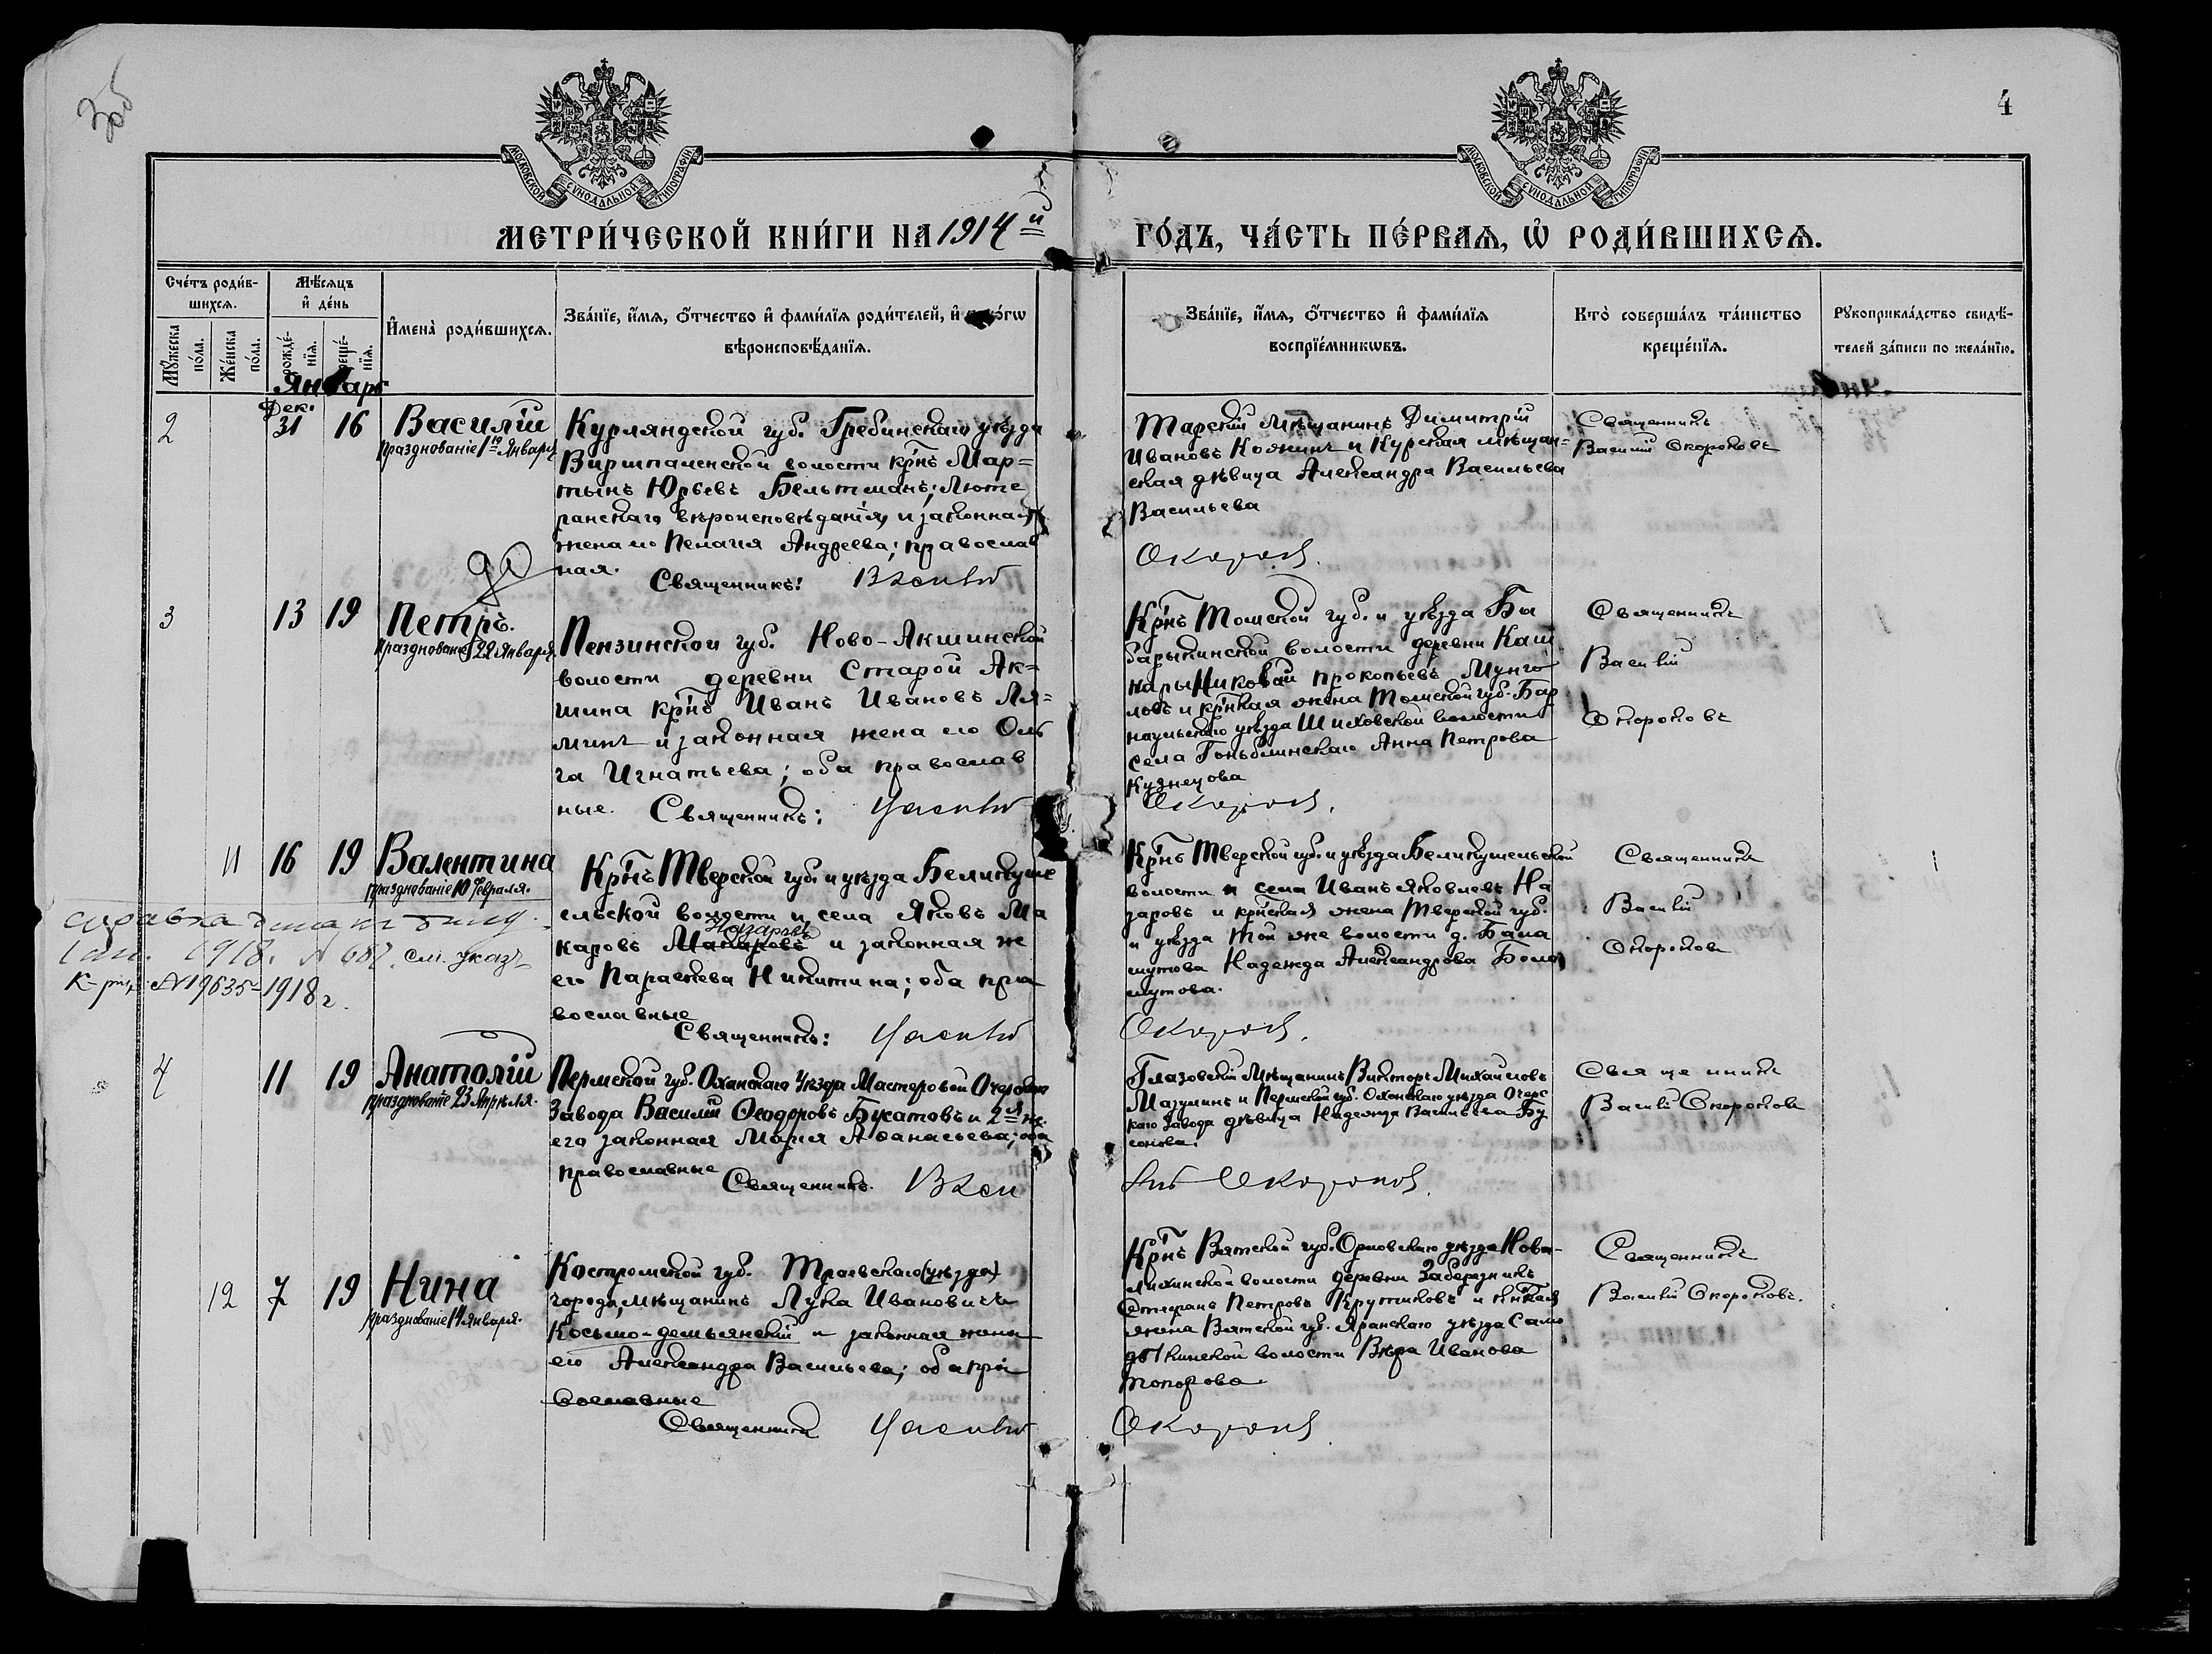 4
МОСКОВСКОЙ СѴНОДАЛЬНОЙ ТИПОГРАФІИ
МОСКОВСКОЙ СѴНОДАЛЬНОЙ ТИПОГРАФІИ
МЕТРИ́ЧЕСКОЙ КНИ́ГИ НА 1914й
ГО́ДЪ, ЧА́СТЬ ПЕ́РВАѦ, Ѡ҆ РОДИ́ВШИХСѦ.
Сче́тъ роди́в-
шихсѧ.
Мѹ́жеска
по́ла.
Же́нска
по́ла.
Мѣ́сѧцъ
и҆ де́нь
рожде́-
нїѧ.
креще́-
нїѧ.
И҆мена̀ роди́вшихсѧ.
Зва́нїе, и҆́мѧ, ѻ҆́тчество и҆ фами́лїѧ роди́телей, и҆
вѣроисповѣ́данїѧ.
Зва́нїе, и҆́мѧ, ѻ҆́тчество и҆ фами́лїѧ
воспрїе́мникѡвъ.
Кто̀ соверша́лъ та́инство
креще́нїѧ.
Рѹкоприкла́дство свидѣ́-
телей за́писи по жела́нїю.
Январь
2
Дек.
31 16
Василій
празднованіе 1го Января
Курляндской губ. Гробинскаго уѣзда
волости крнъ Мар=
тынъ Юрьевъ Бельтманъ; Люте
ранскаго вѣроисповѣданія, и законная
жена его Пелагія Андреева; православ
ная.
Священникъ:
Тарскій Мѣщанинъ Димитрій
Ивановъ Кожинъ и Курская мѣщан=
ская дѣвица Александра Васильева
Васильева
Скороход
Священникъ
Василій Скороходовъ
3 13 19
Петръ.
Празднованіе 22 Января.
Пензинской губ. Ново-Акшинской
волости деревни Старой Ак=
шина крнъ Иванъ Ивановъ Ля=
минъ и законная жена его Оль
га Игнатьева; оба православ
ные. Священникъ: Василій
Крнъ Томской губ. и уѣзда
волости деревни
Прокопьевъ
ловъ и крнская жена Томской губ. Бар
наульскаго уѣзда Шиховской волости
села Анна Петрова
Кузнецова
Священникъ
Василій
Скороходовъ
11 16 19
Валентина
празднованіе 10 Февраля.
1918. № 687. см. указъ
№ 19635 1918 г.
Крнъ Тверской губ. и уѣзда
сельской волости и села Яковъ Ма
Назаровъ
каровъ Макаровъ и законная же
его Параскева Никитина; оба пра
вославные
Священникъ: Василій
Крнъ Тверской губ. и уѣзда
волости и села Иванъ Яковлевъ На
заровъ и крнская жена Тверской губ.
и уѣзда той же волости д. Бала
мутова Надежда Александрова
мутова.
Священникъ
Василій
Скороходов
4 11 19
Анатолій
празднованіе 23 Апрѣля.
Пермской губ. Оханскаго Уѣзда Мастеровой Очерскаго
Завода Василій Ѳеодоровъ и 2я же.
его законная Марія Аѳанасьева; оба
православные
Священникъ.
Глазовскій Мѣщанинъ Викторъ Михаиловъ
Мазунинъ и Пермской губ. Оханскаго уѣзда Очерс
каго Завода дѣвица Надежда Васильева
Священникъ
Василій Скороходов
12 7 19
Нина
празднованіе 14 Января.
Костромской губ. (уѣзда)
города, мѣщанинъ Лука Ивановичъ
Косьмо-демьянскій и законная жена
его Александра Васильева; оба пра
вославные
Священникъ Василій
Крнъ Вятской губ. Орловскаго уѣзда Нова-
волости деревни
Стефанъ Петровъ Крутиковъ и крнская
жена Вятской губ. Яранскаго уѣзда
волости Вѣра Иванова
Топорова.
Священникъ
Василій Скороходовъ.